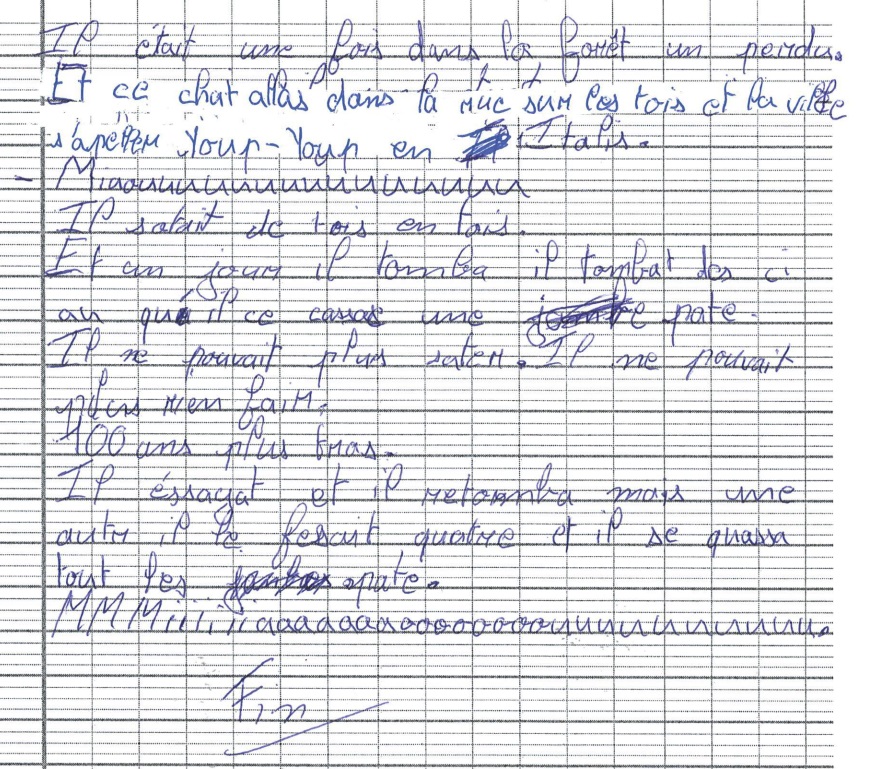 Il était une fois dans la forêt un perdu.
Et ce chat allas dans la ruc sur les tois et la ville
s'apeller Youp-Youp en Italis.
- Miaouuuuuuuuuuuuuuuu
Il satait de tois en tois.
Et un jour il tomba il tombat des ci
au qu il ce cassas une pate.
Il ne pouvait plus sater. Il ne pouvait
plus rien fair.
100 ans plus tras.
Il éssayat et il retomba mais une
autr il le fesait quatre et il se quassa
tout les pate.
MMMiiiiiiaaaaaaaoooooooouuuuuuuuuuu.
Fin